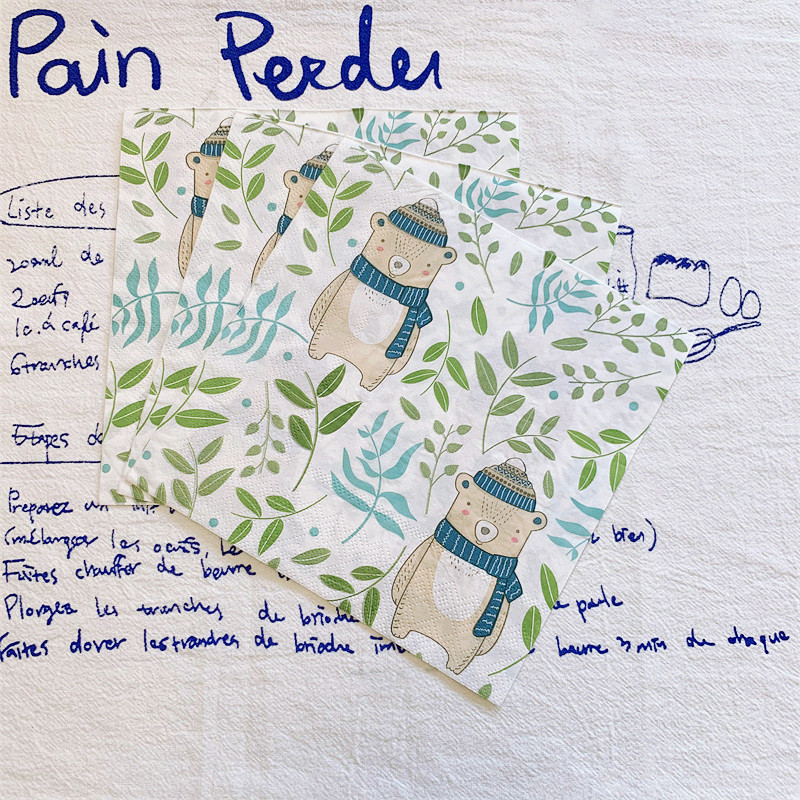 Pain Perdu
Liste des
200ml de
2 oeufs
1c. à café
6 tranches
Etapes de
Préparez un
(mélangez les oeufs, le bien)
Faites chauffer de beurre
Plongez les tranches de brioche
Faites dorer les tranches de brioche beurre 3 min de chaque